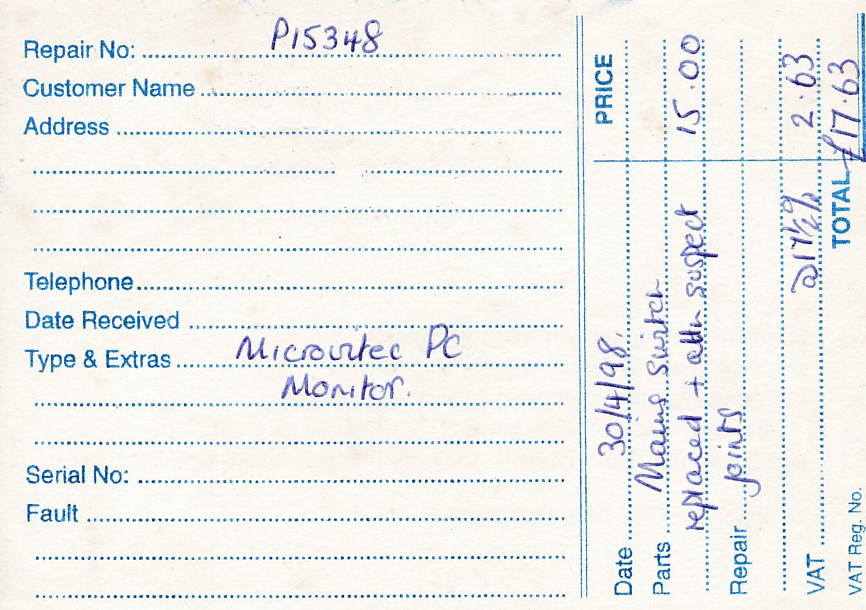 Repair No: P15348
Customer Name
Address
Telephone
Date Received
Type & Extras Microvitec PC
Monitor.
Serial No:
Fault
PRICE
Date 30/4/98.
Parts Mains switch
replaced + attn suspect 15.00
Repair joints
VAT @17½% 2.63
TOTAL £17.63
VAT Reg. No.